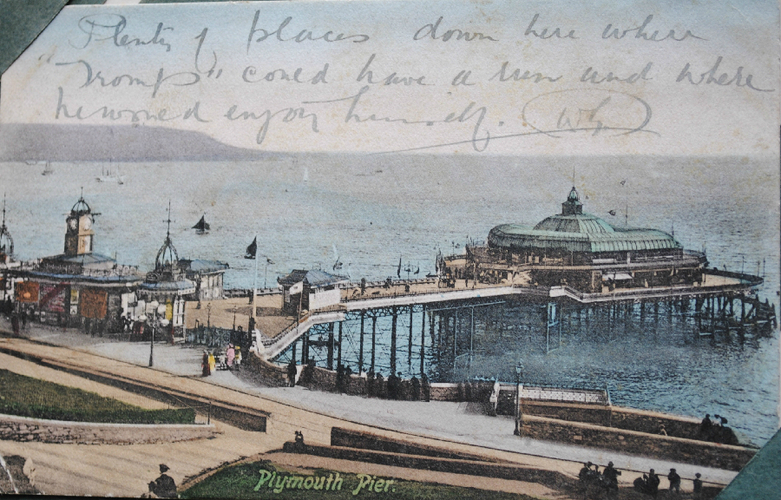 Plenty of places down here where
"Tromps" could have a run and where
he would enjoy himself.
Plymouth Pier.